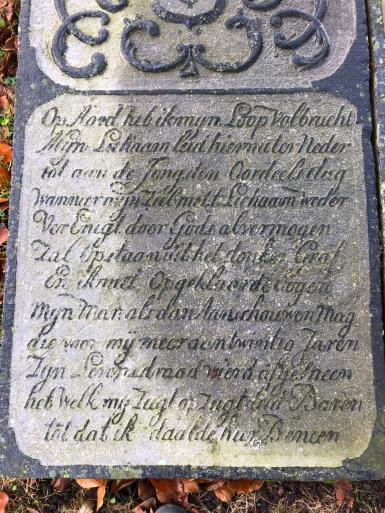 Op Aard heb ik myn Loop volbracht
Myn Lichaam leid hier neder
tot aan de Jongsten Oordeels dag
wanneer myn Ziel met t Lichaam weder
Ver Enigt door Gods alvermogen
Zal opstaan uit het donker Graf
En Ik met Opgeklaarde Oogen
Myn Man als dan Aanschouwen Mag
die voor my meer aen twintig Jaren
Zyn Levens draad wierd afgesneen
het Welk my Zugt op Zugt deed Baren
tot dat ik daalde hier Beneen